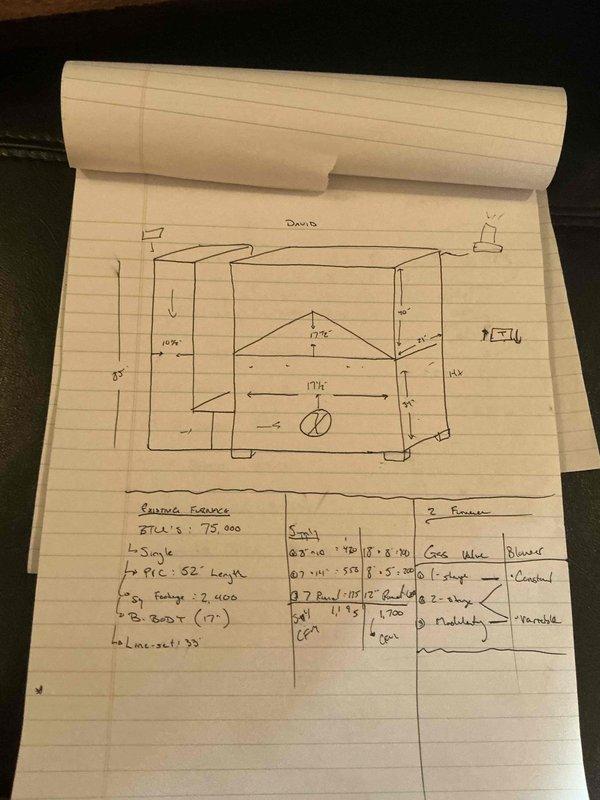 DAVID
40"
17½"
10½"
21"
T
85"
17½"
HX
EXISTING FURNACE
BTU'S: 75,000
Single
PVC: 52' Length
Sq Footage: 2,400
B-BODY (17")
Line-set: 33'
Supply
① 8" × 10" = 420
② 7" × 14" = 550
③ 7 Round = 175
1,195
CFM
18" × 8"
8" × 5" = 200
12" Round
1,700
CFM
2 Furnaces
Gas Valve
Blower
① 1-stage
• Constant
② 2-stage
③ Modulating
• Variable